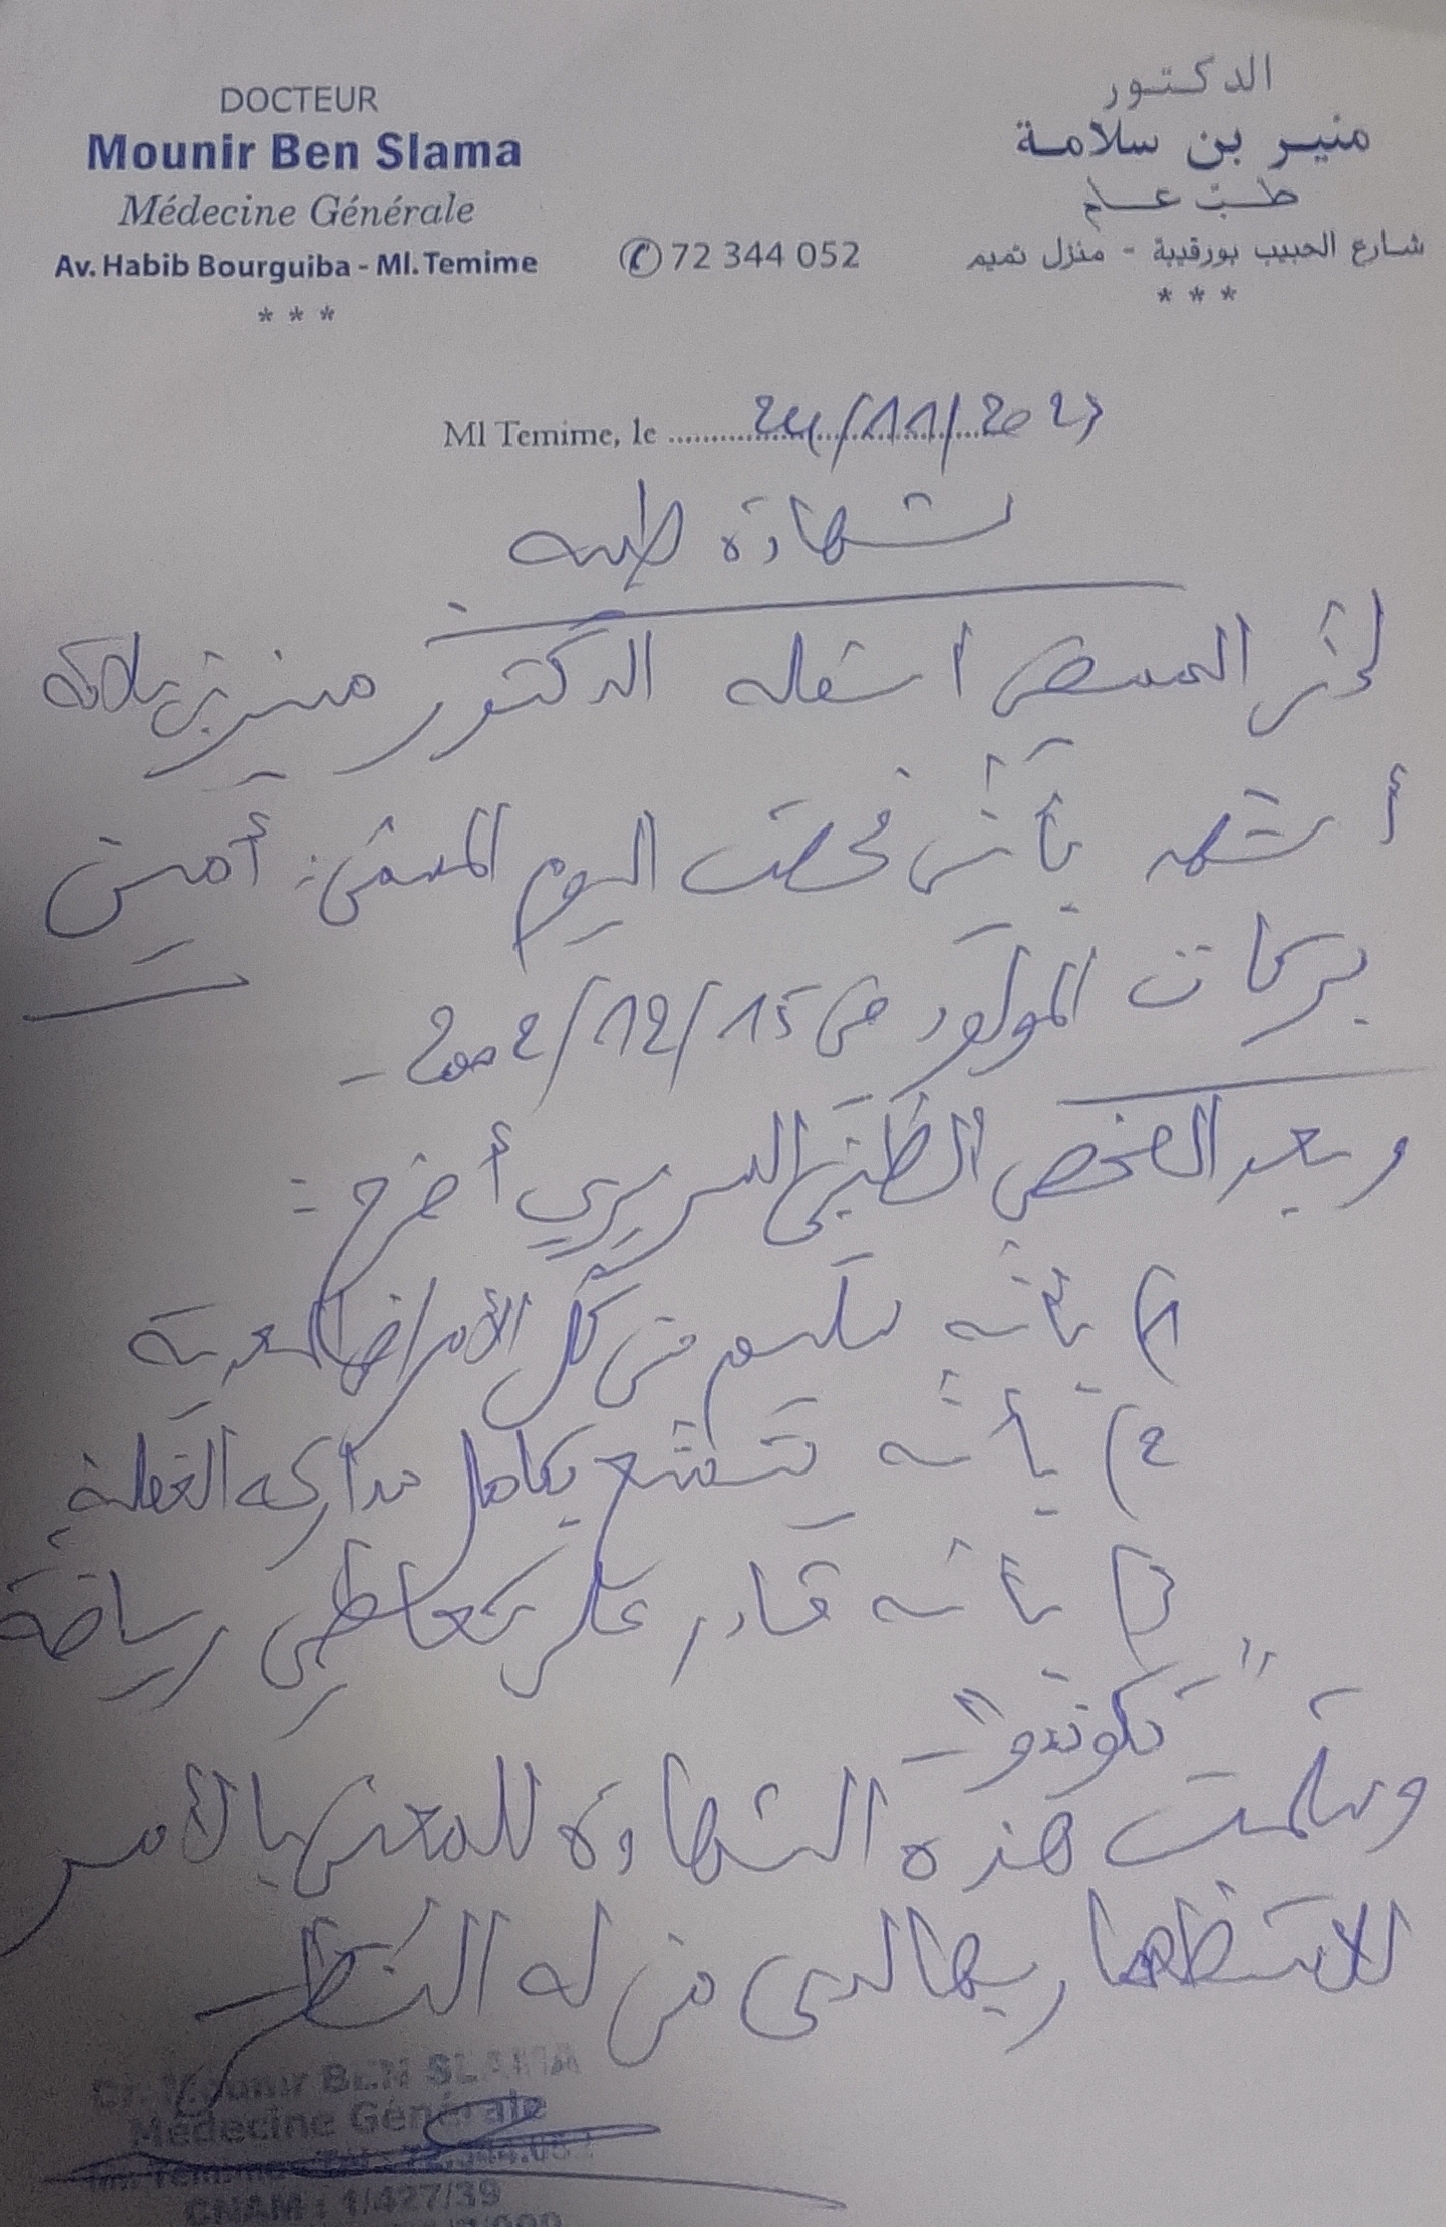 DOCTEUR
Mounir Ben Slama
Médecine Générale
Av. Habib Bourguiba - Ml. Temime
* * *
✆ 72 344 052
الدكتور
منير بن سلامة
طب عام
شارع الحبيب بورقيبة - منزل تميم
* * *
Ml Temime, le 24/11/2023
شهادة طبية
إني الممضي أسفله الدكتور منير بن سلامة
أشهد بأني فحصت اليوم المسمى: أمين
بركات المولود في 15/12/2002 -
وبعد الفحص الطبي السريري أصرح :
1) بأنه سليم من كل الأمراض المعدية
2) بأنه يتمتع بكامل مداركه العقلية
3) بأنه قادر على تعاطي رياضة
"تكوندو" -
وسلمت هذه الشهادة للمعني بالأمر
للاستظهار بها لدى من له النظر
Dr. Mounir BEN SLAMA
Médecine Générale
Ml. Temime - Tél : 72.344.052
CNAM : 1/427/39